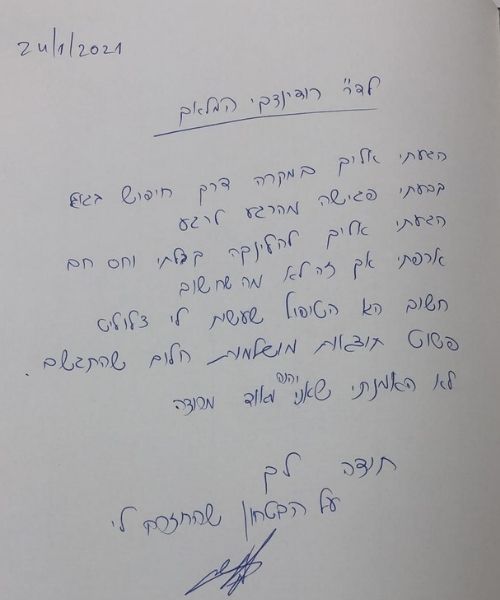 24/1/2021
לדר' רודינצקי המלאך
הגעתי אליך במקרה דרך חיפוש בגוגל
קבעתי פגישה מהרגע לרגע
הגעתי אליך לקליניקה קבלתי יחס חם
אך זה לא מה שחשוב
חשוב הא הטיפול שעשית לי צלוליט
פשוט תוצאות מושלמות חלום שהתגשם .
לא האמנתי שאני יהנה מאוד מרוצה
תודה לך
על הבטחון שהחזרת לי